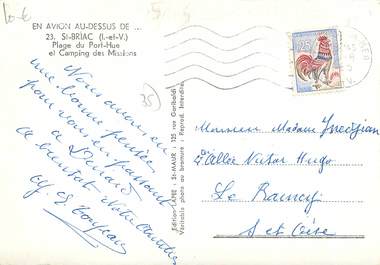 EN AVION AU-DESSUS DE ...
23. St-BRIAC (I.-et-V.)
Plage du Port-Hue
et Camping des Missions
35
Nous aurons eu
une bonne pensée
pour vous en passant
à Dinard
à bientôt votre
0,25
Monsieur Madame
2 Allée Victor Hugo
Le Raincy
S et Oise
Edition LAPIE - St-MAUR - 125 rue Garibaldi
Véritable photo au bromure - Reprod. Interdite